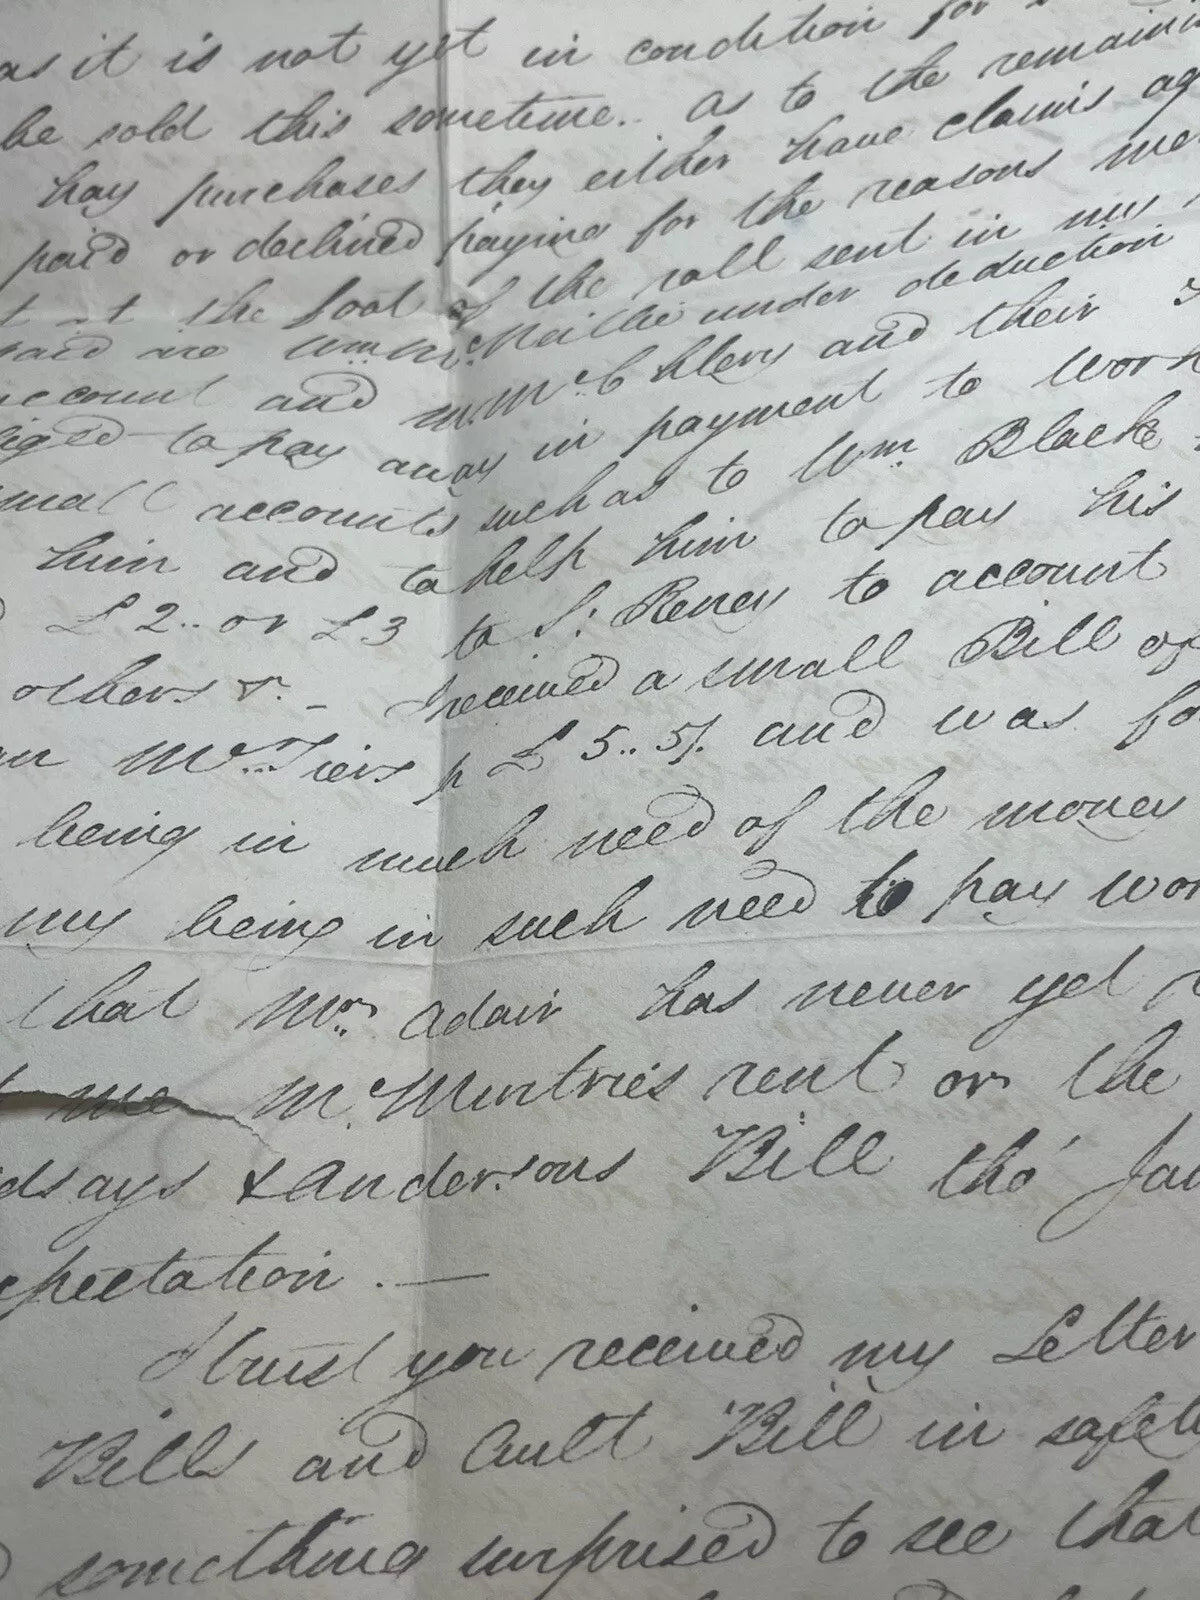 as it is not yet in condition for
be sold this sometime.. as to the remaini
hay purchases they either have claims ag
paid or declined paying for the reasons me
at the foot of the roll sent in my
said are Wm Mc under deduction
account and Mc and their
liged to pay away in payment to work
small accounts such as to Wm Black
him and to help him to pay his
£2.. or £3 to S: to account
others &c. – I received a small Bill of
Mr. p £5..5/. and was fo
being in much need of the money
my being in such need to pay wor
that Mr. Adair has never yet
me McMurtries rent or the
dsays & Andersons Bill tho' Ja
xpectation. —
I trust you received my Letter
Bills and Ault Bill in safety
something surprised to see that